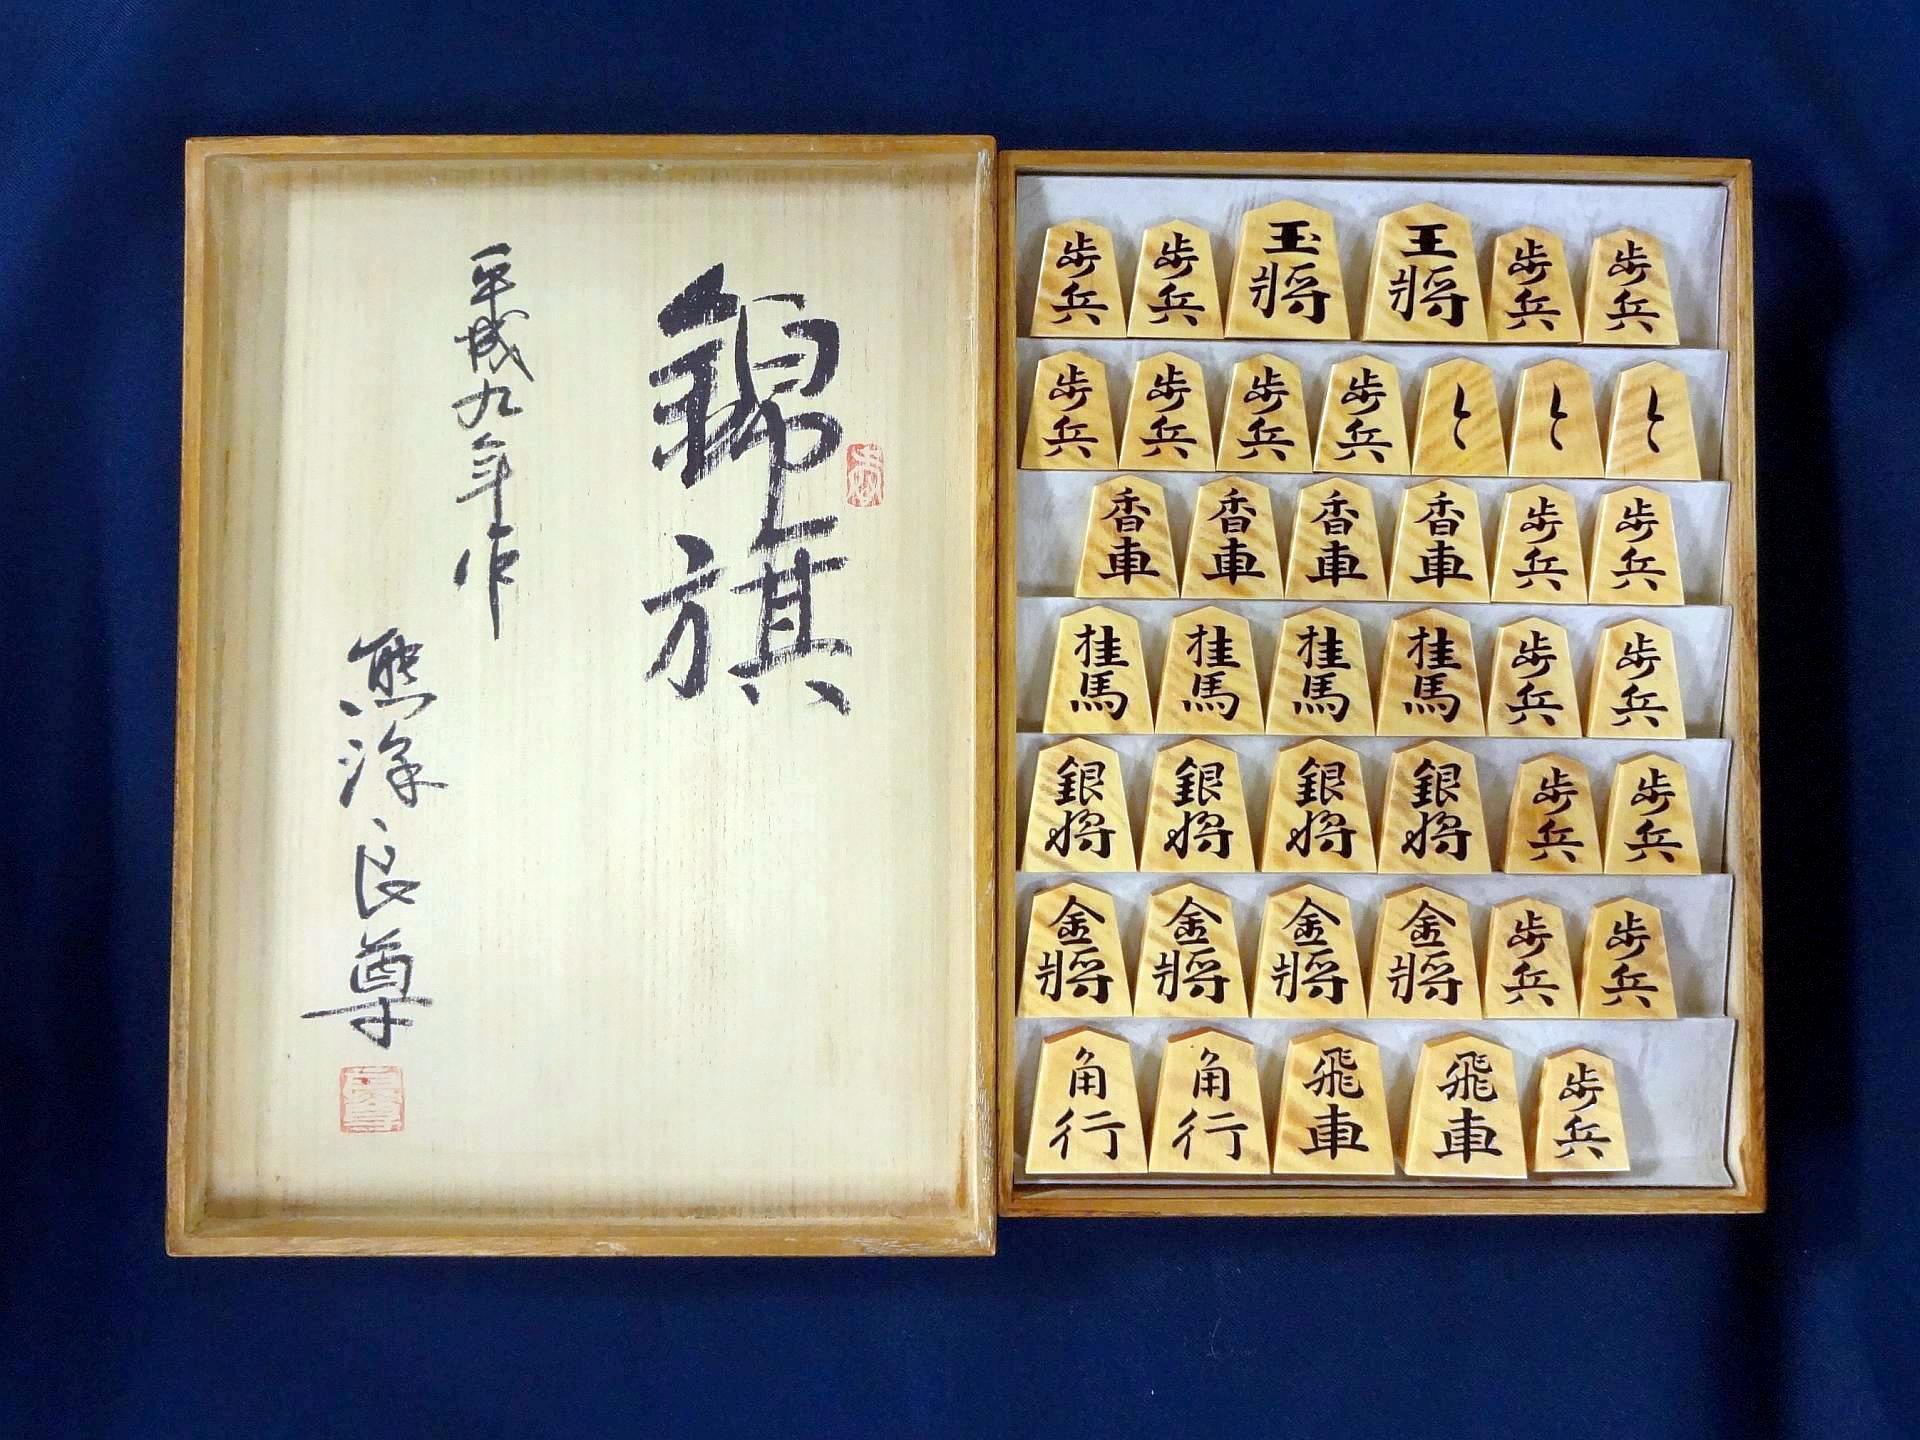 錦旗
平成九年作
熊澤良尊
歩兵 歩兵 玉将 王将 歩兵 歩兵
歩兵 歩兵 歩兵 歩兵 と と と
香車 香車 香車 香車 歩兵 歩兵
桂馬 桂馬 桂馬 桂馬 歩兵 歩兵
銀将 銀将 銀将 銀将 歩兵 歩兵
金将 金将 金将 金将 歩兵 歩兵
角行 角行 飛車 飛車 歩兵